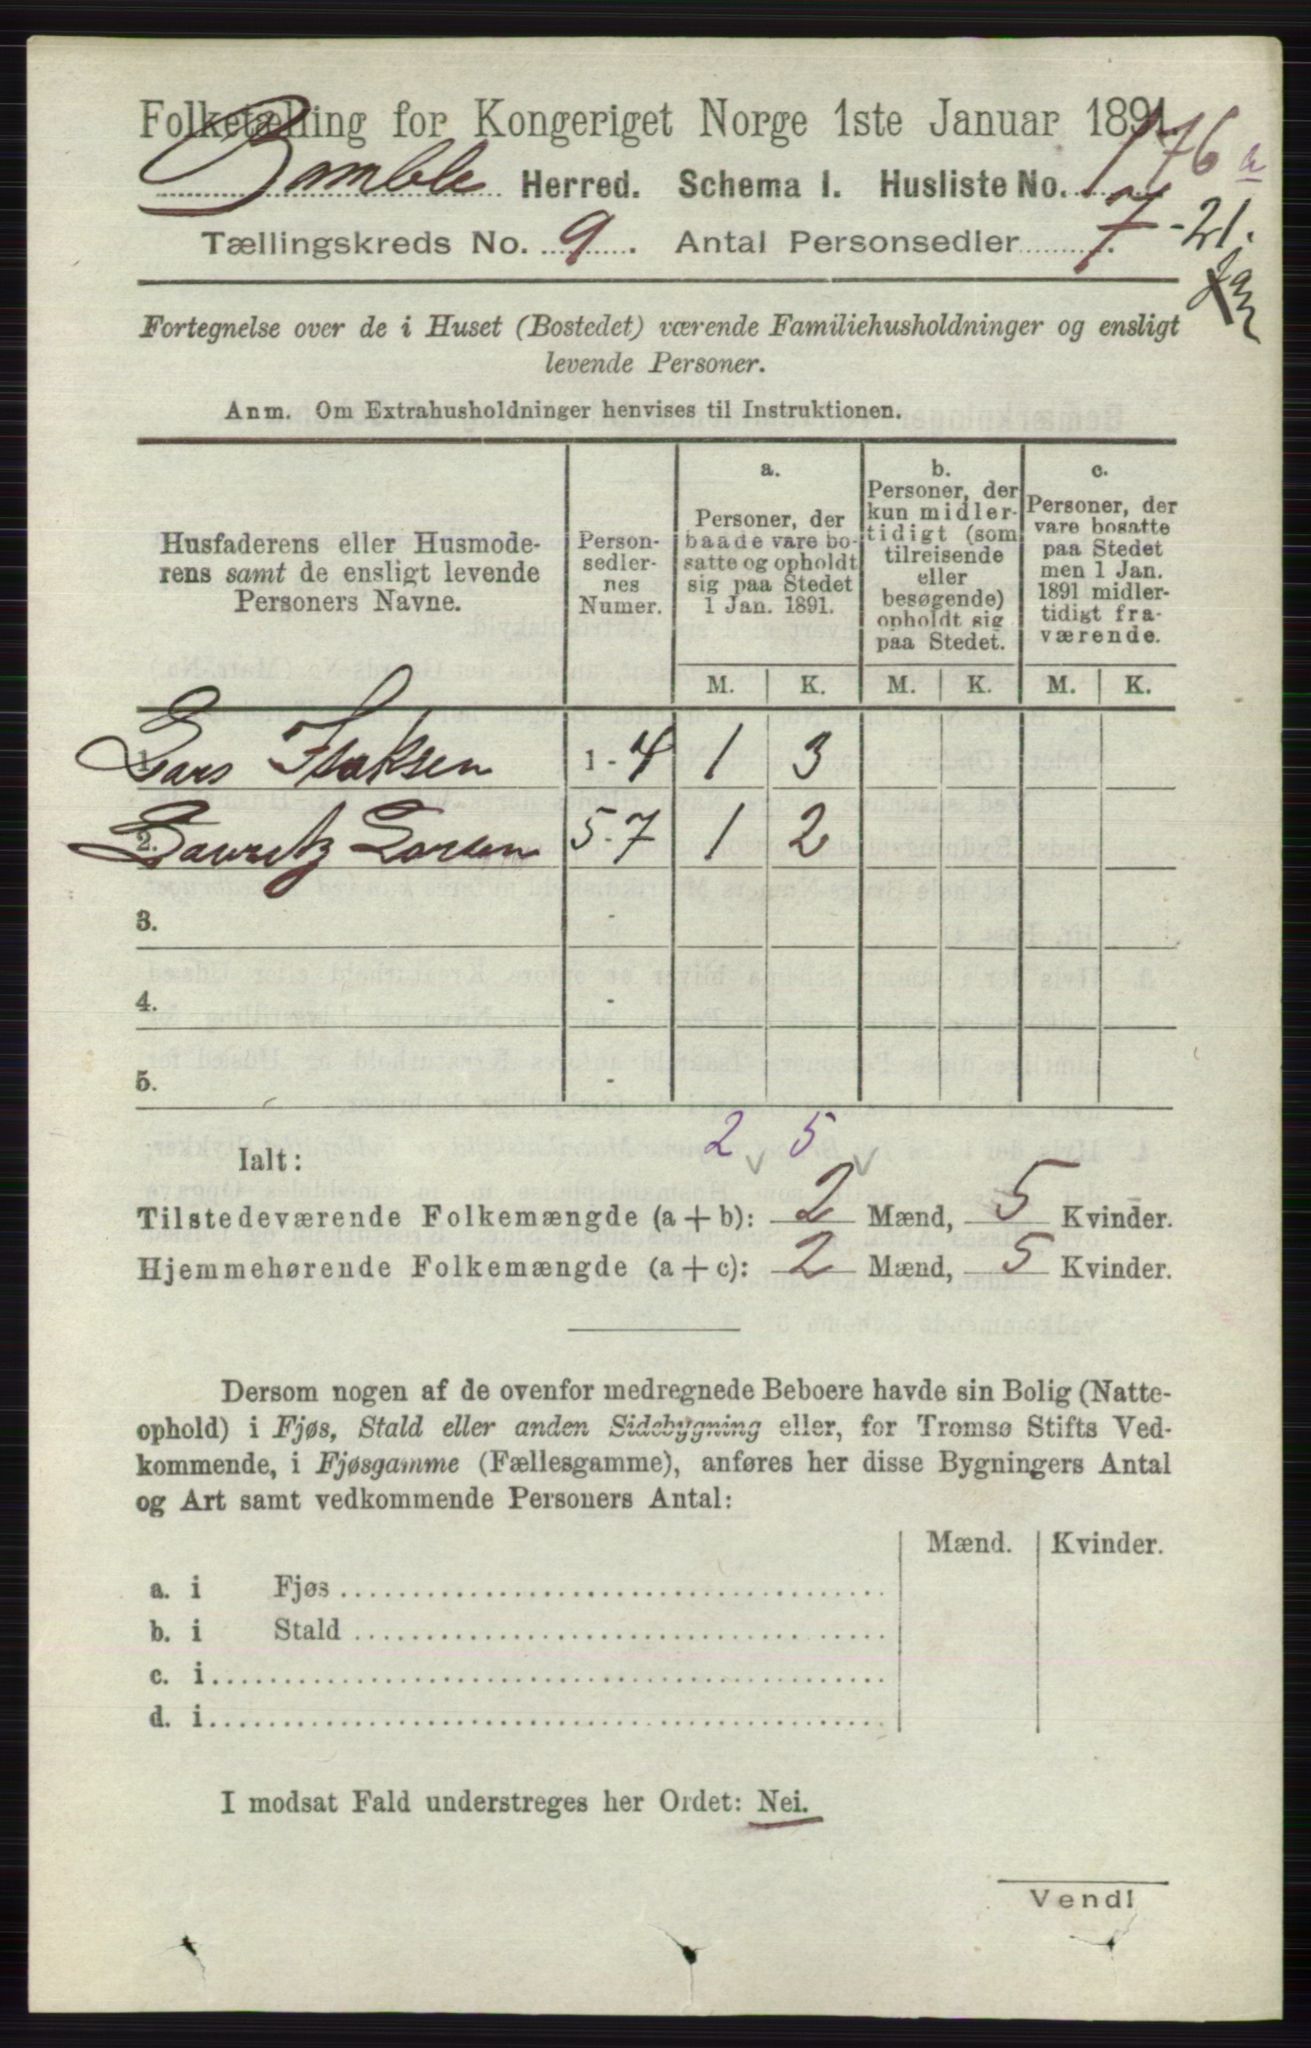 Folketælling for Kongeriget Norge 1ste Januar 1891.
Bamble Herred. Schema I. Husliste No. 176 a
Tællingskreds No. 9. Antal Personsedler 7. 7-21.
Fortegnelse over de i Huset (Bostedet) værende Familiehusholdninger og ensligt
levende Personer.
Anm. Om Extrahusholdninger henvises til Instruktionen.
Husfaderens eller Husmode-
rens samt de ensligt levende
Personers Navne.
Person-
sedler-
nes
Numer.
a.
Personer, der
baade vare bo-
satte og opholdt
sig paa Stedet
1 Jan. 1891.
b.
Personer, der
kun midler-
tidigt (som
tilreisende
eller
besøgende)
opholdt sig
paa Stedet.
c.
Personer, der
vare bosatte
paa Stedet
men 1 Jan.
1891 midler-
tidigt fra-
værende.
M. K. M. K. M. K.
1. Lars Isaksen 1-4 1 3
2. Lauritz Larsen 5-7 1 2
3. -
4. -
5. -
2 5
Ialt:
Tilstedeværende Folkemængde (a+b): 2 Mænd, 5 Kvinder.
Hjemmehørende Folkemængde (a+c): 2 Mænd, 5 Kvinder.
Dersom nogen af de ovenfor medregnede Beboere havde sin Bolig (Natte-
ophold) i Fjøs, Stald eller anden Sidebygning eller, for Tromsø Stifts Ved-
kommende, i Fjøsgamme (Fællesgamme), anføres her disse Bygningers Antal
og Art samt vedkommende Personers Antal:
Mænd. Kvinder.
a. i Fjøs
b. i Stald
c. i
d. i
I modsat Fald understreges her Ordet: Nei.
Vend!